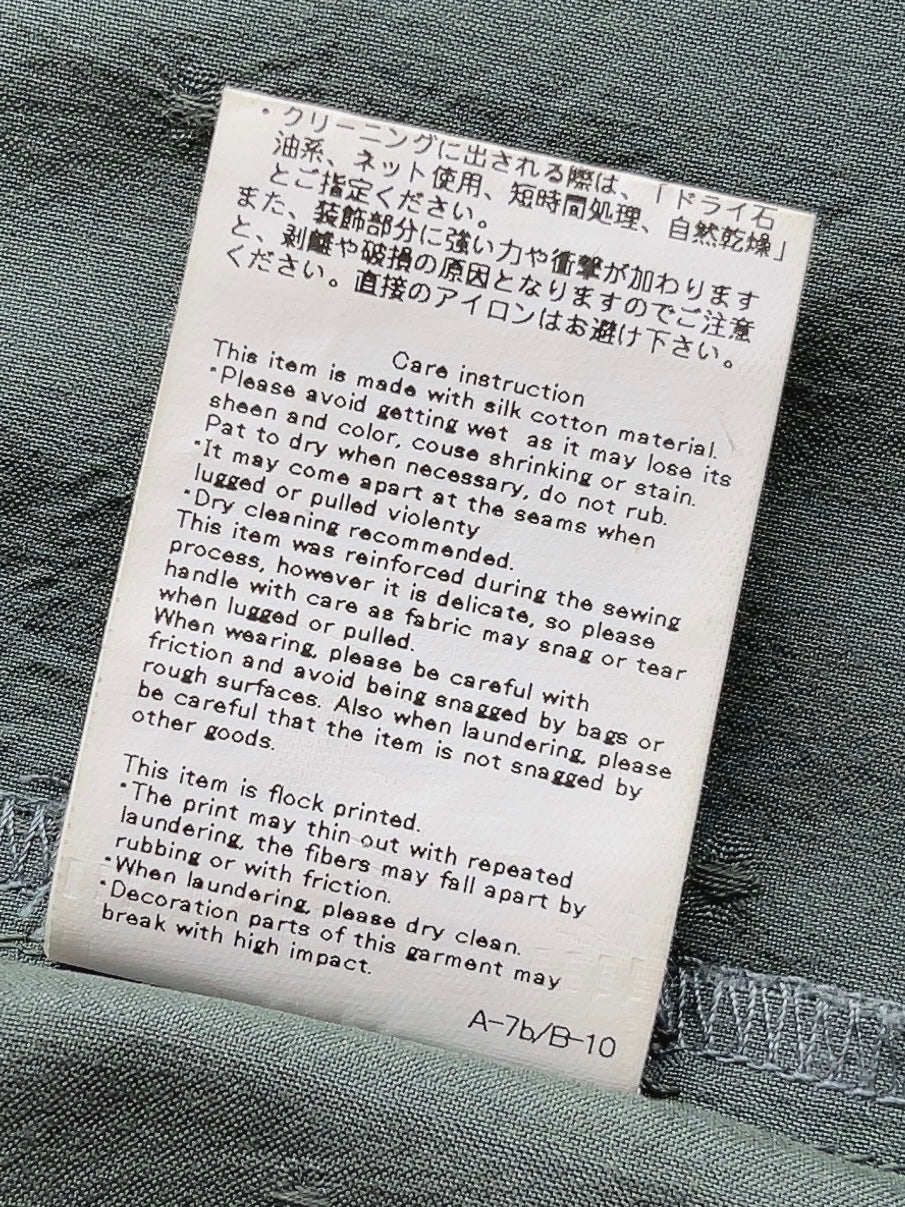 ・クリーニングに出される際は、「ドライ石
油系、ネット使用、短時間処理、自然乾燥」
とご指定ください。
また、装飾部分に強い力や衝撃が加わります
と、剥離や破損の原因となりますのでご注意
ください。直接のアイロンはお避け下さい。
Care instruction
This item is made with silk cotton material.
・Please avoid getting wet as it may lose its
sheen and color, couse shrinking or stain.
Pat to dry when necessary, do not rub.
・It may come apart at the seams when
lugged or pulled violenty
・Dry cleaning recommended.
This item was reinforced during the sewing
process, however it is delicate, so please
handle with care as fabric may snag or tear
when lugged or pulled.
When wearing, please be careful with
friction and avoid being snagged by bags or
rough surfaces. Also when laundering, please
be careful that the item is not snagged by
other goods.
This item is flock printed.
・The print may thin out with repeated
laundering, the fibers may fall apart by
rubbing or with friction.
・When laundering, please dry clean.
・Decoration parts of this garment may
break with high impact.
A-7b/B-10